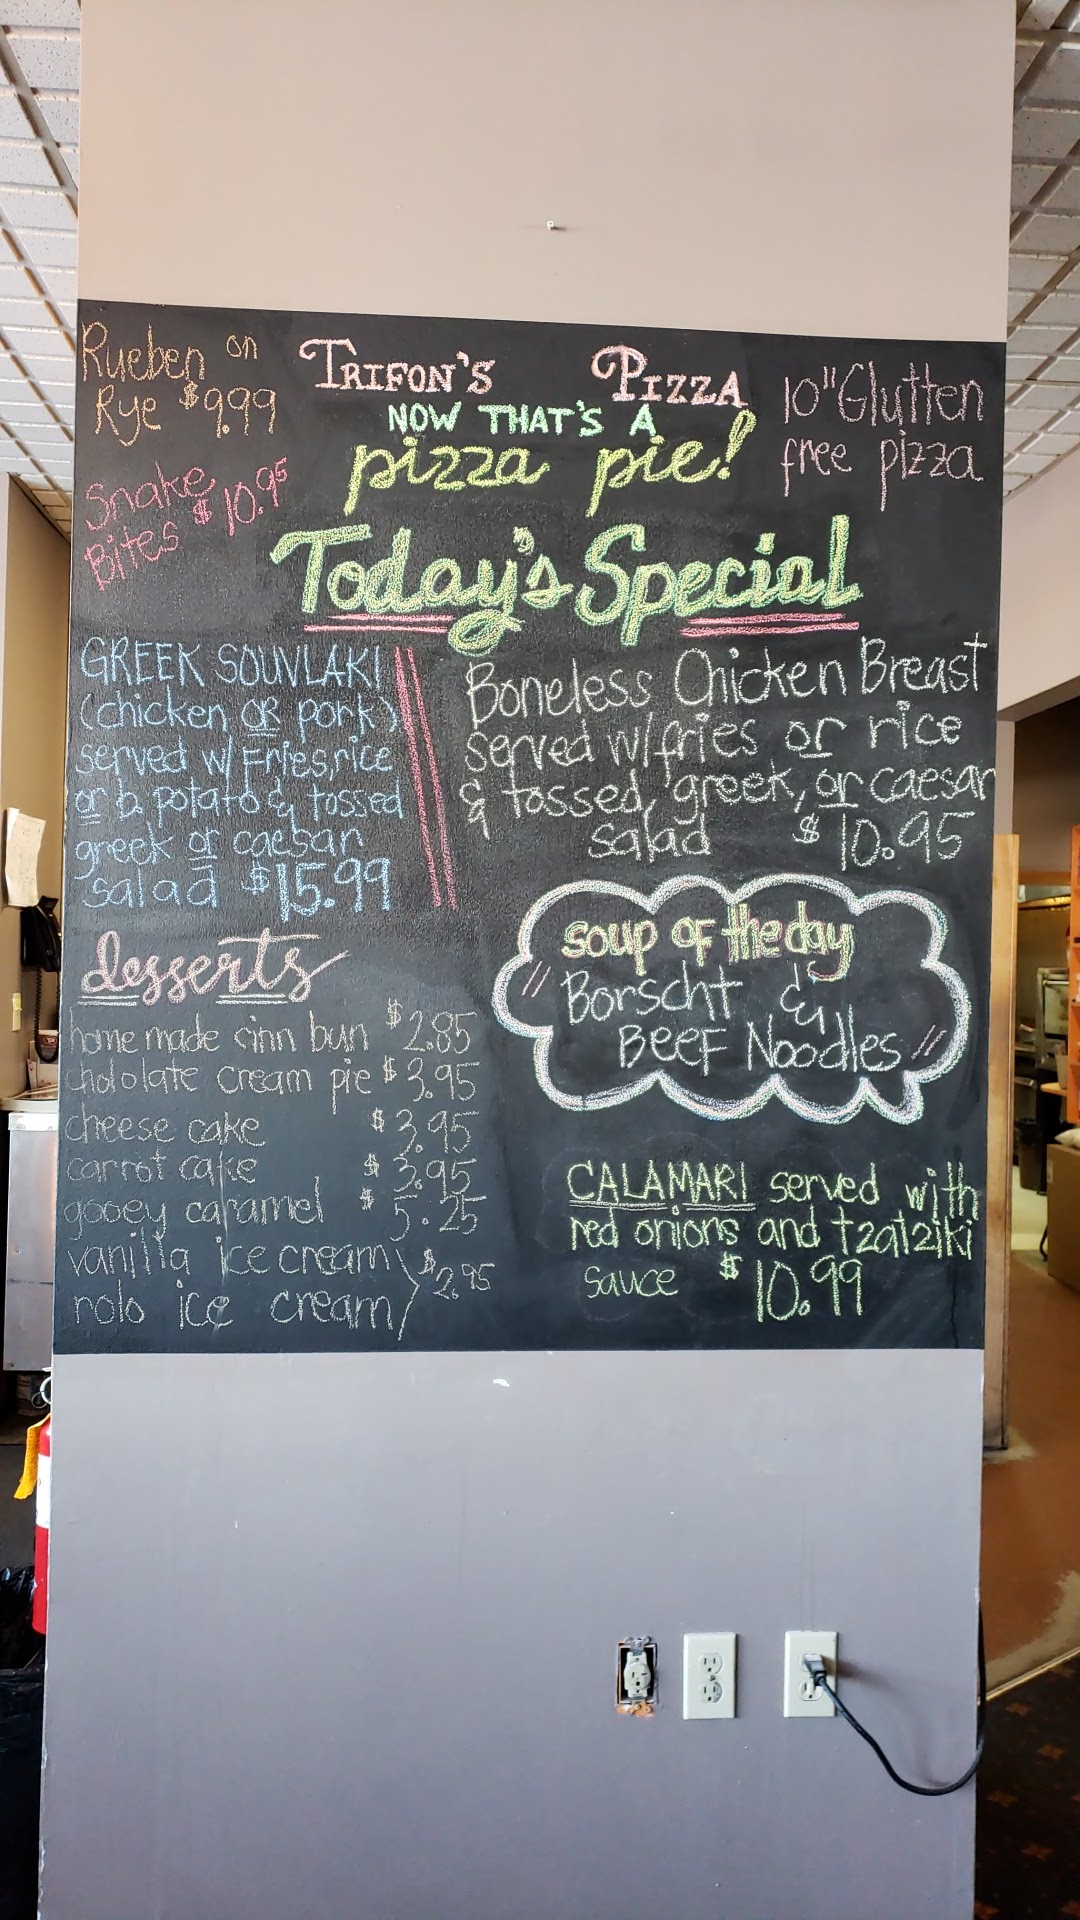 Rueben on
Rye $9.99
Snake
Bites $10.95
TRIFON'S PIZZA
NOW THAT'S A
pizza pie!
10" Glutten
free pizza
Today's Special
GREEK SOUVLAKI
(chicken OR pork)
served w/ Fries, rice
or b. potato & tossed
greek or caesar
salad $15.99
Boneless Chicken Breast
served w/ fries or rice
& tossed, greek, or caesar
salad $10.95
desserts
home made cinn bun $2.85
chololate cream pie $3.95
cheese cake $3.95
carrot cake $3.95
gooey caramel $5.25
vanilla ice cream
rolo ice cream } $2.95
soup of the day
"Borscht &
BEEF Noodles"
CALAMARI served with
red onions and tzatziki
sauce $10.99